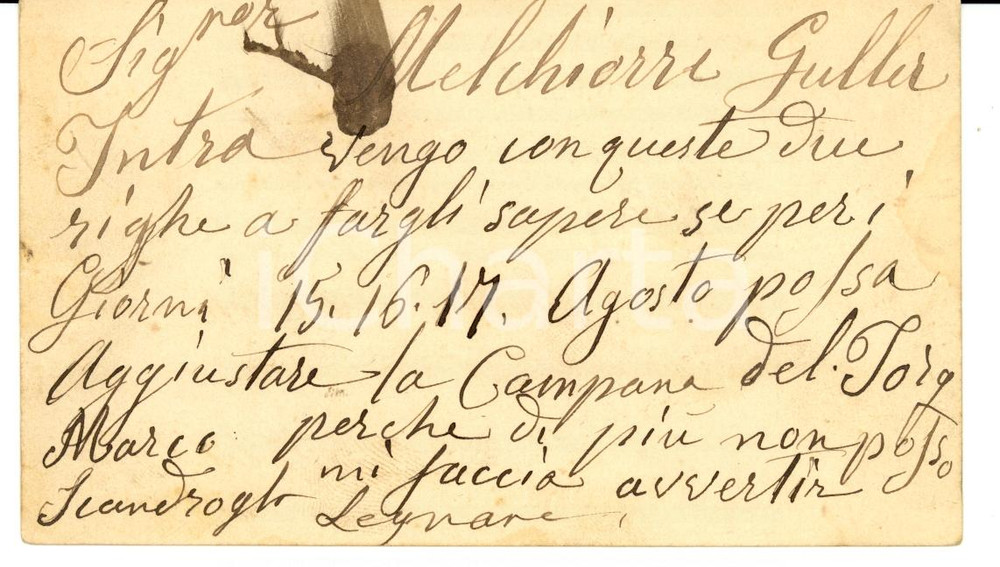 Sig.nor Melchiorre Guller
Intra vengo con queste due
righe a fargli sapere se per i
Giorni 15. 16. 17. Agosto possa
Aggiustare la Campana del. Torq
Marco perche di più non posso
mi faccia avvertir
Scandrogl Legnane
iCharta